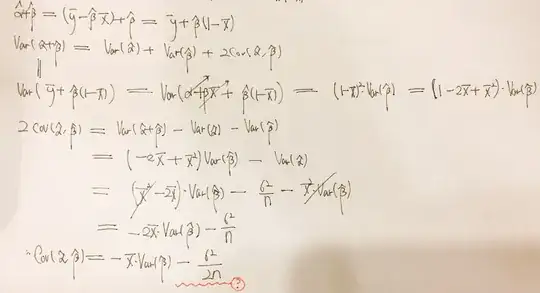 α̂+β̂ = (ȳ-β̂x̄)+β̂ = ȳ+β̂(1-x̄)
Var(α̂+β̂) = Var(α̂) + Var(β̂) + 2Cov(α̂,β̂)
||
Var(ȳ+β̂(1-x̄)) = Var(α+βx̄+β̂(1-x̄)) = (1-x̄)²·Var(β̂) = (1-2x̄+x̄²)·Var(β̂)
2Cov(α̂,β̂) = Var(α̂+β̂) - Var(α̂) - Var(β̂)
= (-2x̄+x̄²)Var(β̂) - Var(α̂)
= (x̄²-2x̄)·Var(β̂) - σ²/n - x̄²·Var(β̂)
= -2x̄·Var(β̂) - σ²/n
∴ Cov(α̂,β̂) = -x̄·Var(β̂) - σ²/2n ?